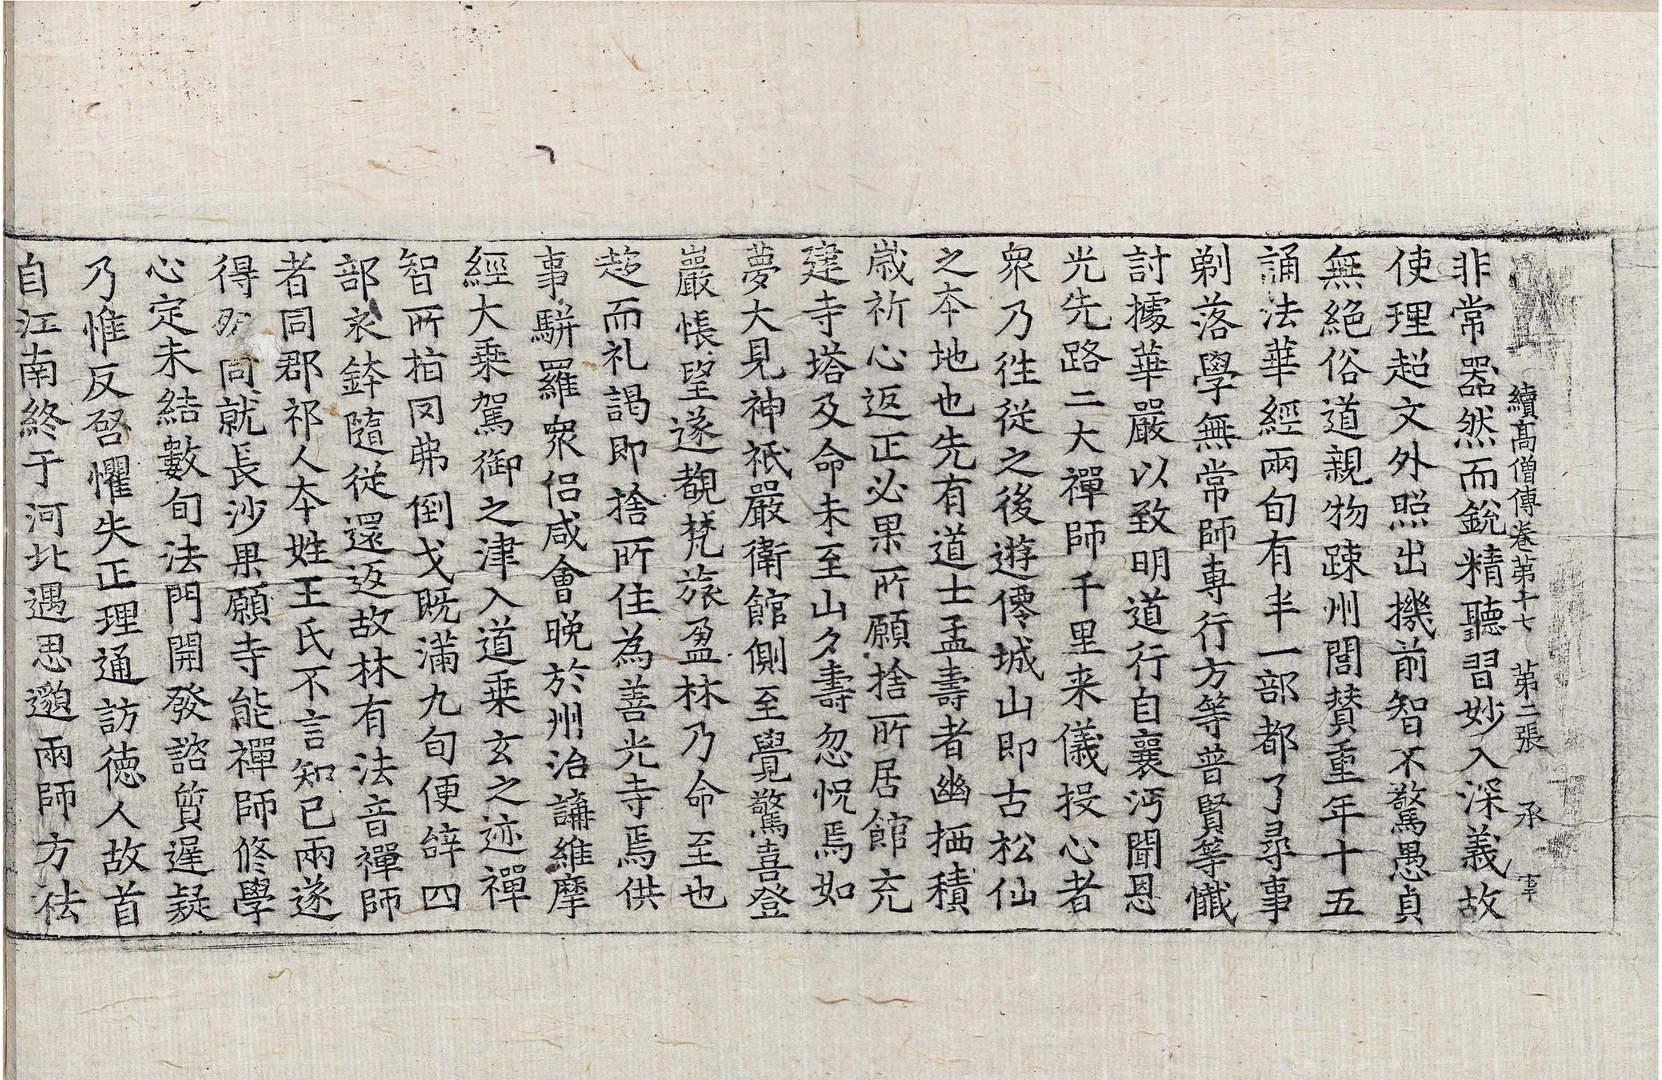 續高僧傳卷第十七　第二張　承
非常器然而銳精聽習妙入深義故
使理超文外照出機前智不驚愚貞
無絕俗道親物踈州閭賛重年十五
誦法華經兩旬有半一部都了尋事
剃落學無常師專行方等普賢等懺
討據華嚴以致明道行自襄沔聞恩
光先路二大禪師千里来儀投心者
衆乃徃從之後遊僊城山即古松仙
之夲地也先有道士孟壽者幽栖積
歲祈心返正必果所願捨所居館充
建寺塔及命未至山夕壽忽怳焉如
夢大見神祇嚴衛館側至覺驚喜登
巖悵望遂覩梵旅盈林乃命至也
趍而礼謁即捨所住為善光寺焉供
事駢羅衆侣咸會晚於州治講維摩
經大乗駕御之津入道乗玄之迹禪
智所指罔弗倒戈既滿九旬便辝四
部衣鉢隨從還返故林有法音禪師
者同郡祁人夲姓王氏不言知己兩遂
得朋同就長沙果願寺能禪師修學
心定未結數旬法門開發諮質遲疑
乃惟反啓懼失正理通訪徳人故首
自江南終于河北遇思邈兩師方祛